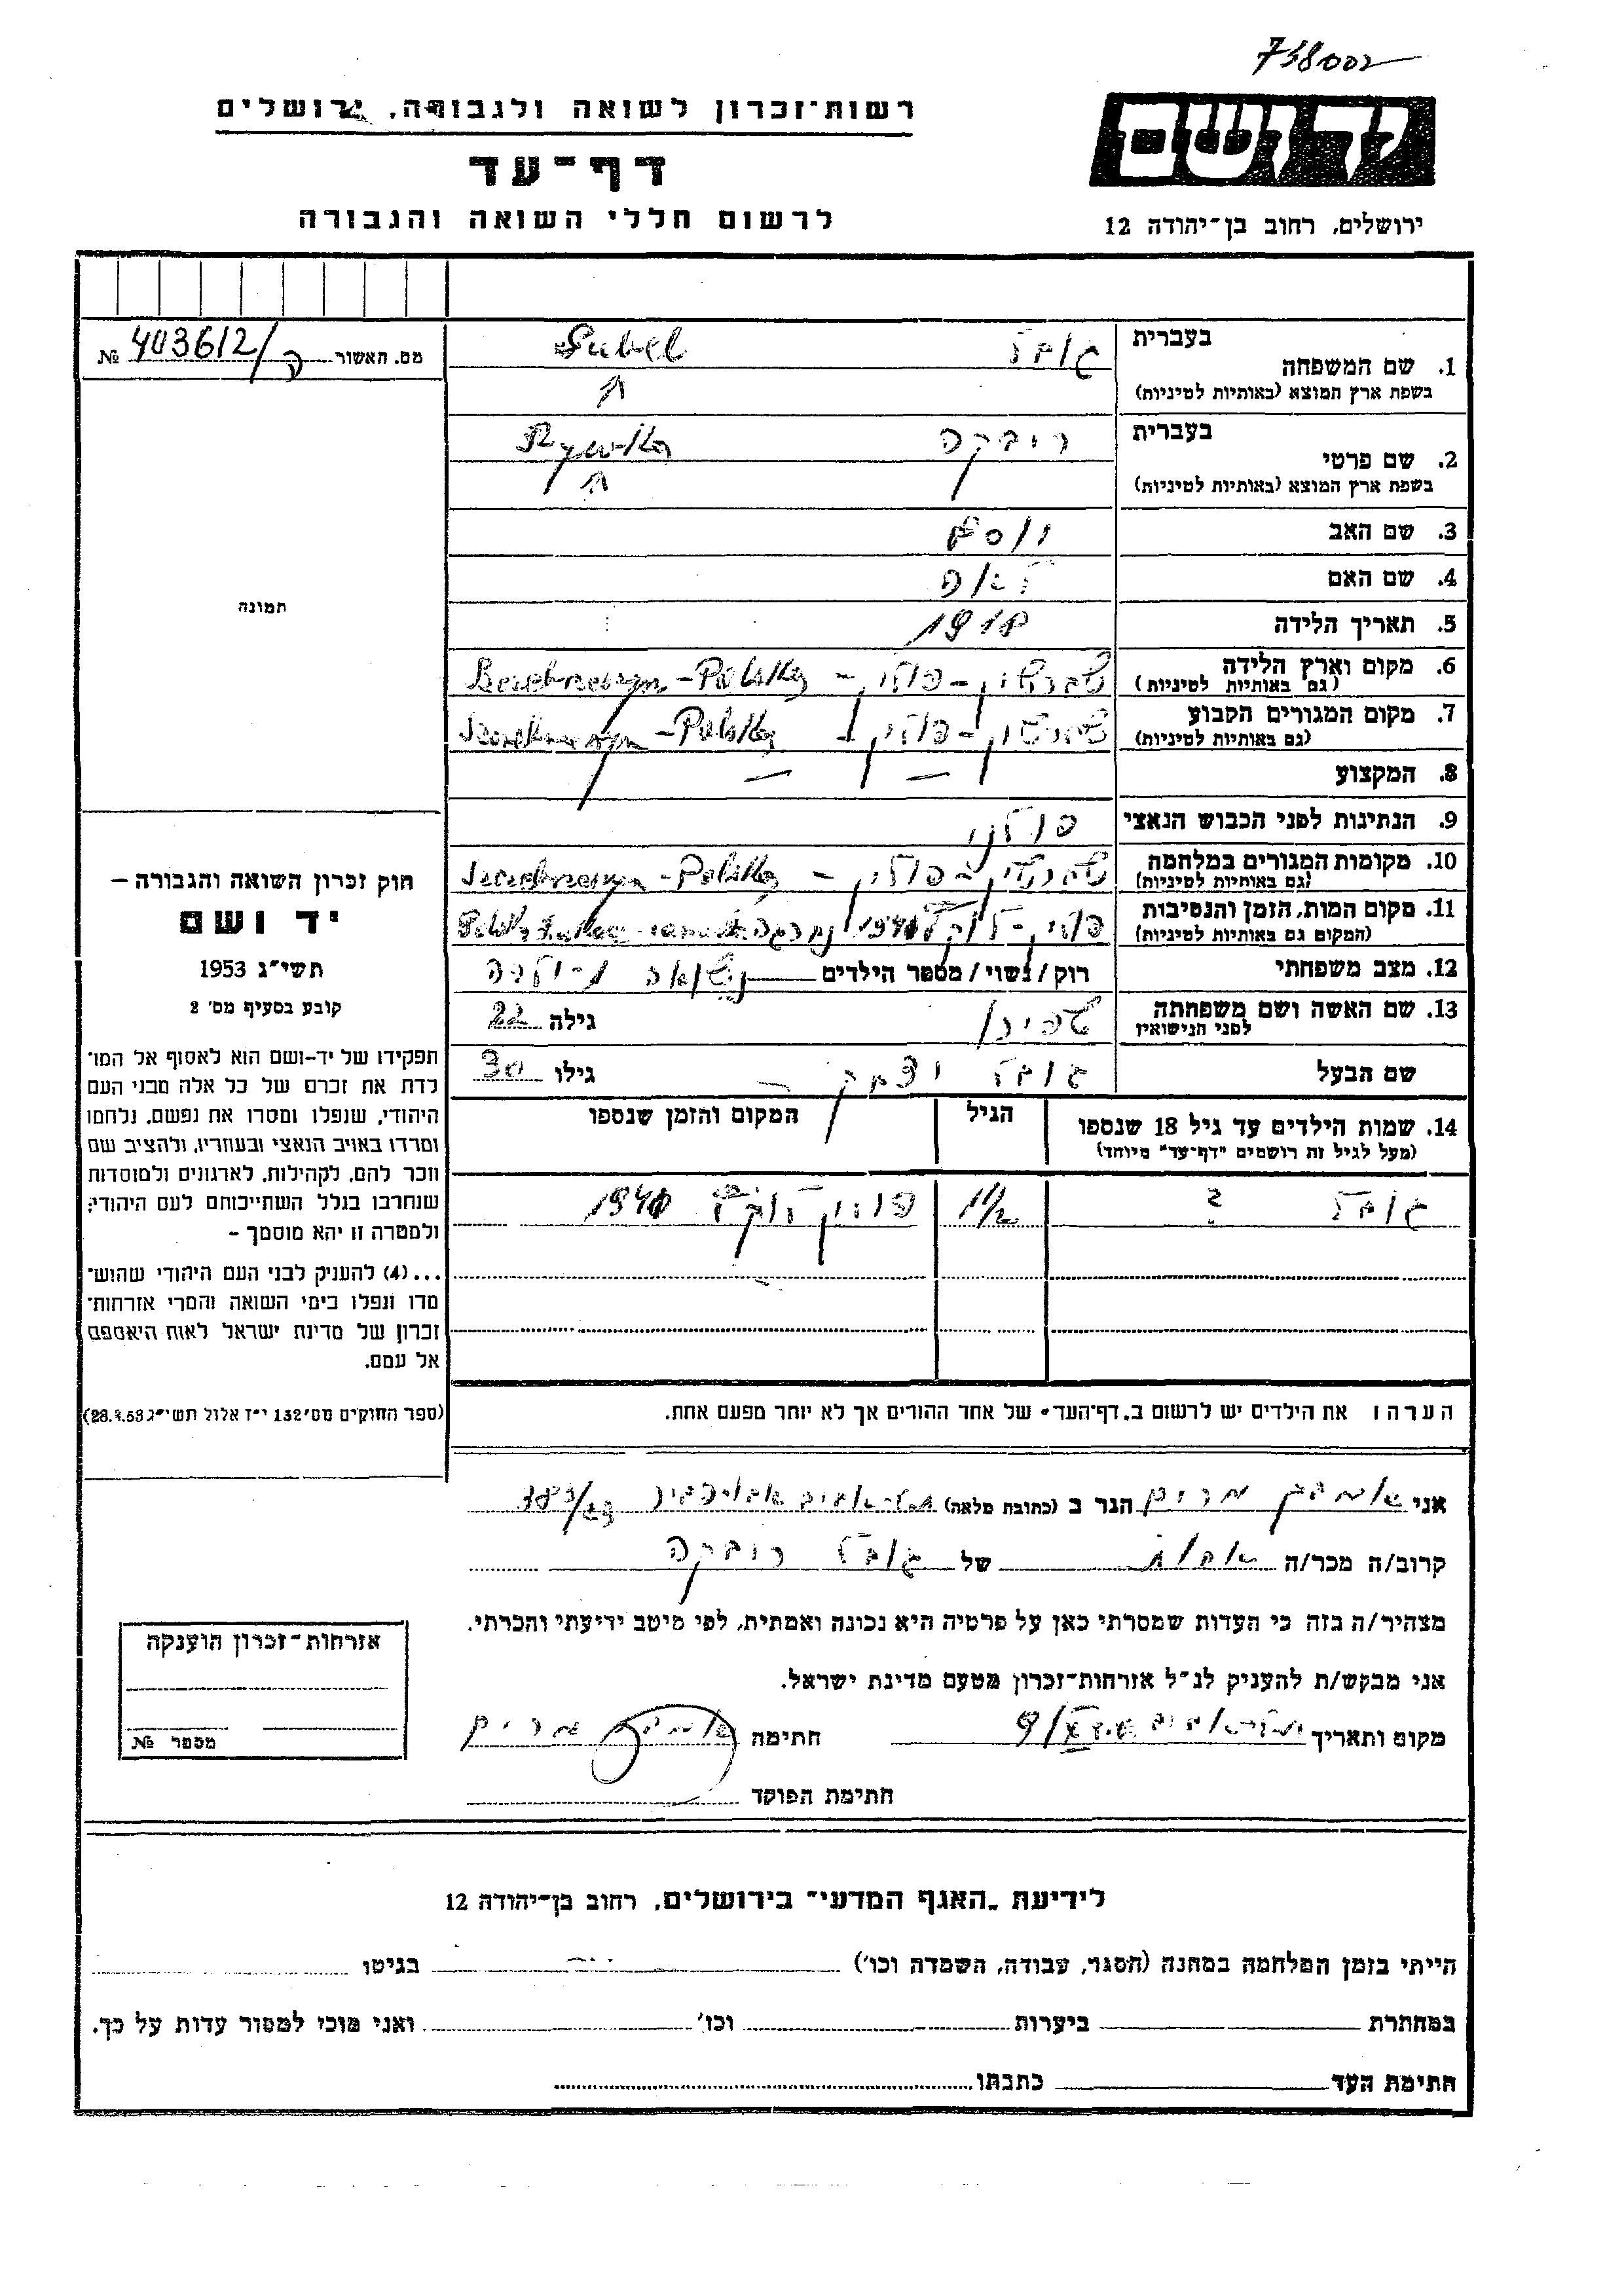 738002
רשות־זכרון לשואה ולגבורה, ירושלים
יד ושם
דף־עד
לרשום חללי השואה והגבורה
ירושלים, רחוב בן־יהודה 12
מס. תאשור ה/403612 №
1. שם המשפחה
בעברית
גובל Gubel
בשפת ארץ המוצא (באותיות לטיניות)
2. שם פרטי
בעברית
ריבקה Rywka
בשפת ארץ המוצא (באותיות לטיניות)
3. שם האב יוסף
4. שם האם לאה
5. תאריך הלידה
6. מקום וארץ הלידה
(גם באותיות לטיניות) שברשין - פולין - Polska
7. מקום המגורים הקבוע
(גם באותיות לטיניות) שברשין - פולין - Polska
8. המקצוע — —
9. הנתינות לפני הכבוש הנאצי פולני
10. מקומות המגורים במלחמה
(גם באותיות לטיניות) שברשין - פולין - Polska
11. מקום המות, הזמן והנסיבות
(המקום גם באותיות לטיניות) פולין - לוצק
12. מצב משפחתי רוק/נשוי/מספר הילדים נשואה + ילדה
13. שם האשה ושם משפחתה
לפני הנישואין גילה 22
שם הבעל גובל יצחק גילו 30
14. שמות הילדים עד גיל 18 שנספו הגיל המקום והזמן שנספו
(מעל לגיל זה רושמים "דף־עד" מיוחד)
גובל ? 1½ פולין לוצק
הערה: את הילדים יש לרשום ב„דף־העד" של אחד ההורים אך לא יותר מפעם אחת.
תמונה
חוק זכרון השואה והגבורה —
יד ושם
תשי״ג 1953
קובע בסעיף מס׳ 2
תפקידו של יד-ושם הוא לאסוף אל המו־
לדת את זכרם של כל אלה מבני העם
היהודי, שנפלו ומסרו את נפשם, נלחמו
ומרדו באויב הנאצי ובעוזריו, ולהציב שם
וזכר להם, לקהילות, לארגונים ולמוסדות
שנחרבו בגלל השתייכותם לעם היהודי;
ולמטרה זו יהא מוסמך -
...(4) להעניק לבני העם היהודי שהוש־
מדו ונפלו בימי השואה והמרי אזרחות־
זכרון של מדינת ישראל לאות היאספם
אל עמם.
(ספר החוקים מס׳ 132 י״ז אלול תשי״ג 28.8.53)
אני מרים הגר ב (כתובת מלאה) תל-אביב
קרוב/ה מכר/ה אחות של גובל ריבקה
מצהיר/ה בזה כי העדות שמסרתי כאן על פרטיה היא נכונה ואמתית, לפי מיטב ידיעתי והכרתי.
אני מבקש/ת להעניק לנ״ל אזרחות־זכרון מטעם מדינת ישראל.
מקום ותאריך תל-אביב חתימה מרים
חתימת הפוקד
אזרחות־זכרון הוענקה
מספר №
לידיעת „האגף המדעי" בירושלים, רחוב בן־יהודה 12
הייתי בזמן המלחמה במחנה (הסגר, עבודה, השמדה וכו׳) בגיטו
במחתרת ביערות וכו׳ ואני מוכן למסור עדות על כך.
חתימת העד כתבתו